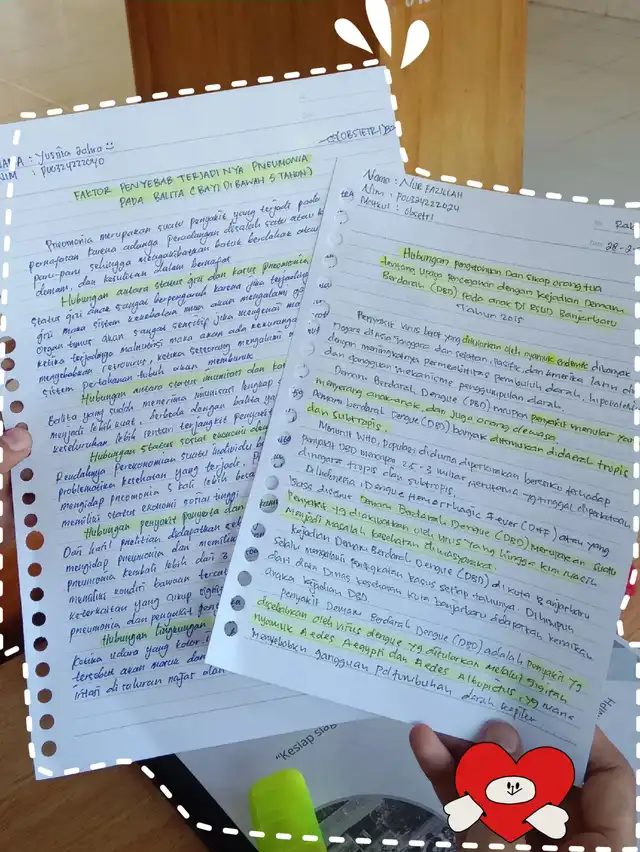 NAMA : Yusnia Zahra
NIM : P00324222040
(OBSTETRI)
FAKTOR PENYEBAB TERJADI NYA PNEUMONIA
PADA BALITA (BAYI DI BAWAH 5 TAHUN)
Pneumonia merupakan suatu penyakit yang terjadi pada
pernafasan karena adanya peradangan disalah satu atau
paru-paru sehingga mengakibatkan batuk berdahak atau
demam, dan kesulitan dalam bernafas
Hubungan antara status gizi dan kasus pneumonia
Status gizi anak sangat berpengaruh karena jika terjadinya
gizi maka sistem kesehatan akan mengalami
organ tubuh akan sangat sensitif jika mengenai
ketika terjadinya malnutrisi maka akan ada kekurangan
mengabaikan retrovirus, ketika seseorang mengalami
sistem pertahanan tubuh akan memburuk
Hubungan antara status imunisasi dan
Balita yang sudah menerima imunisasi lengkap
menjadi lebih kuat, berbeda dengan balita
keseluruhan lebih rentan terjangkit penyakit
Hubungan status sosial ekonomi dan
Rendahnya perekonomian suatu individu
problematika kesehatan yang terjadi.
mengidap pneumonia 5 kali lebih besar
memiliki status ekonomi sosial tinggi
Hubungan penyakit penyerta dan
Dari hasil penelitian didapatkan
mengidap pneumonia dan memiliki
pneumonia kembali lebih dari 3
memiliki kondisi bawaan
keterkaitan yang cukup
pneumonia dan penyakit
Hubungan lingkungan
Ketika udara yang kotor
tersebut akan masuk dan
iritasi di saluran nafas
Nama : NUR FAZILLAH
Nim : P00324222024
Matkul : Obsetri
No: Rab
Date: 28-2
Hubungan pengetahuan dan sikap orang tua
tentang Upaya Pencegahan dengan Kejadian Demam
Berdarah (DBD) Pada anak DI RSUD Banjarbaru
Tahun 2015
Penyakit virus berat yang ditularkan oleh nyamuk endemik dibanyak
Negara di Asia Tenggara dan selatan, Pasifik dan Amerika latin
dengan meningkatnya permeabilitas pembuluh darah,
dan gangguan mekanisme penggumpalan darah.
Demam Berdarah Dengue (DBD) merupakan penyakit menular yang
menyerang anak-anak, dan juga orang dewasa.
Demam berdarah Dengue (DBD) banyak ditemukan didaerah tropis
dan subtropis.
Menurut WHO, populasi didunia diperkirakan berisiko terhadap
Penyakit DBD mencapai 2,5-3 miliar terutama yg tinggal diperkotaan
dinegara tropis dan subtropis.
Di Indonesia, Dengue Hemorrhagic Fever (DHF) atau yang
biasa disebut Demam Berdarah Dengue (DBD) Merupakan suatu
Penyakit yg diakibatkan oleh virus yang hingga kini masih
menjadi masalah kesehatan dimasyarakat.
Kejadian Demam Berdarah Dengue (DBD) di kota Banjarbaru
selalu mengalami peningkatan kasus setiap tahunnya. Dihimpun
dari data Dinas Kesehatan kota banjarbaru didapatkan kenaikan
angka kejadian DBD
Penyakit Demam Berdarah Dengue (DBD) adalah penyakit yg
disebabkan oleh virus dengue yg ditularkan melalui gigitan
nyamuk Aedes Aegypti dan Aedes Albopictus, yg mana
menyebabkan gangguan Pd tumbuhan darah kapiler
"Kesiap siag